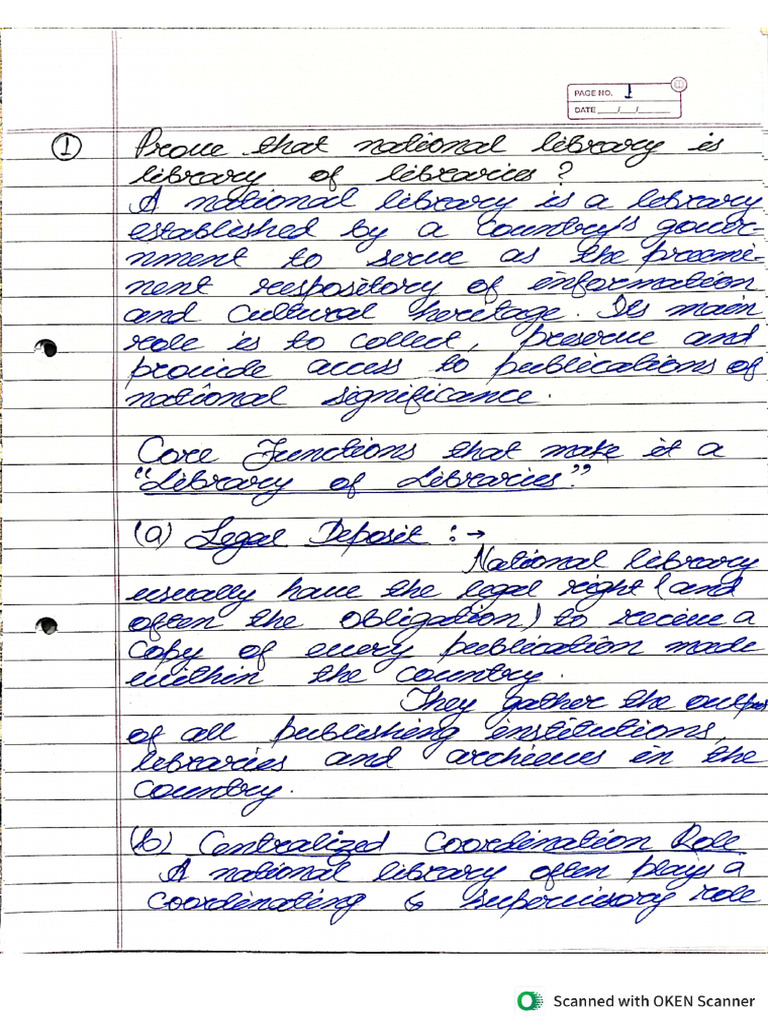 PAGE NO. 1
DATE __/__/____
① Prove that national library is
library of libraries?
A national library is a library
established by a country's gover-
nment to serve as the preemi-
nent respository of information
and cultural heritage. Its main
role is to collect, preserve and
provide access to publications of
national significance.
Core Functions that make it a
"Library of Libraries."
(a) Legal Deposit :→
National library
usually have the legal right (and
often the obligation) to receive a
copy of every publication made
within the country.
They gather the output
of all publishing institutions,
libraries and archieves in the
country.
(b) Centralized Coordination Role
A national library often plays a
coordinating & supervisory role
Scanned with OKEN Scanner